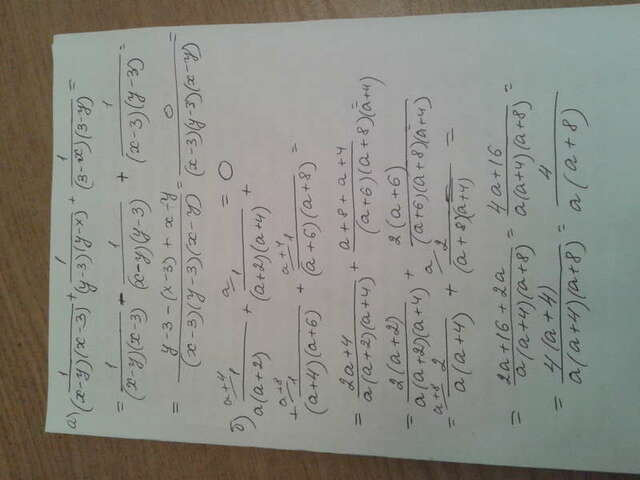 а) 1/((x-y)(x-3)) + 1/((y-3)(y-x)) + 1/((3-x)(3-y)) =
= 1/((x-y)(x-3)) - 1/((x-y)(y-3)) + 1/((x-3)(y-3)) =
= (y-3-(x-3)+x-y)/((x-3)(y-3)(x-y)) = 0/((x-3)(y-3)(x-y)) =
= 0
б) a+4\ 1/(a(a+2)) + a\ 1/((a+2)(a+4)) +
+ a+8\ 1/((a+4)(a+6)) + a+4\ 1/((a+6)(a+8)) =
= (2a+4)/(a(a+2)(a+4)) + (a+8+a+4)/((a+6)(a+8)(a+4)) =
= 2(a+2)/(a(a+2)(a+4)) + 2(a+6)/((a+6)(a+8)(a+4)) =
= a+8\ 2/(a(a+4)) + a\ 2/((a+8)(a+4)) =
= (2a+16+2a)/(a(a+4)(a+8)) = (4a+16)/(a(a+4)(a+8)) =
= 4(a+4)/(a(a+4)(a+8)) = 4/(a(a+8))